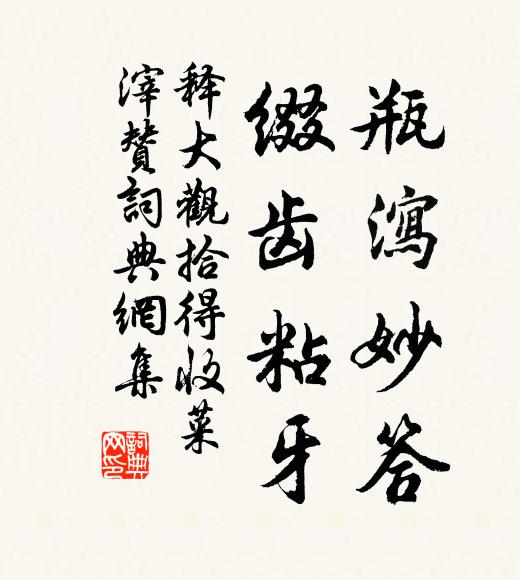 瓶瀉妙答
缀齿粘牙
释大觀拾得收菜
滓贊詞典網集
詞典網印